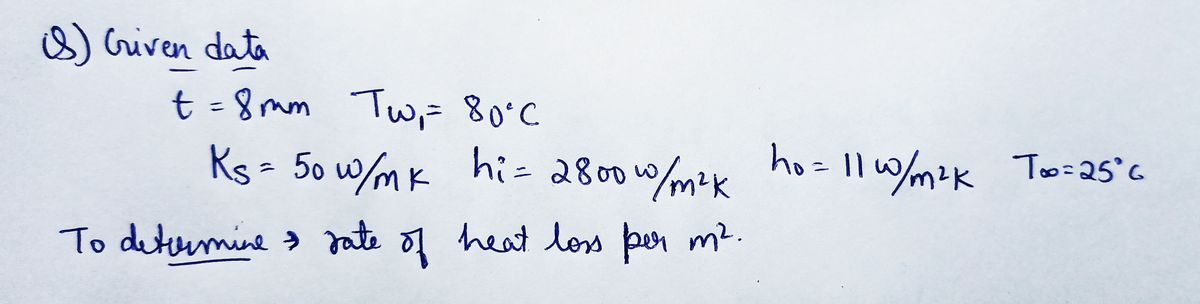 8) Given data
t = 8mm Tw₁= 80°C
Ks = 50 w/mK hi = 2800 w/m²K ho = 11 w/m²K T∞=25°C
To determine → rate of heat loss per m².